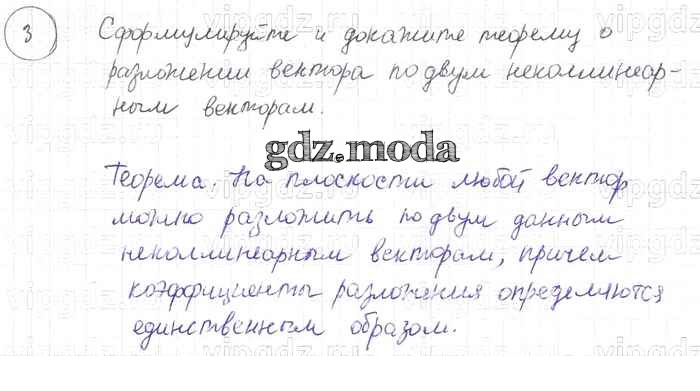 3 Сформулируйте и докажите теорему о
разложении вектора по двум неколлинеар-
ным векторам.
gdz.moda
Теорема. На плоскости любой вектор
можно разложить по двум данным
неколлинеарным векторам, причем
коэффициенты разложения определяются
единственным образом.